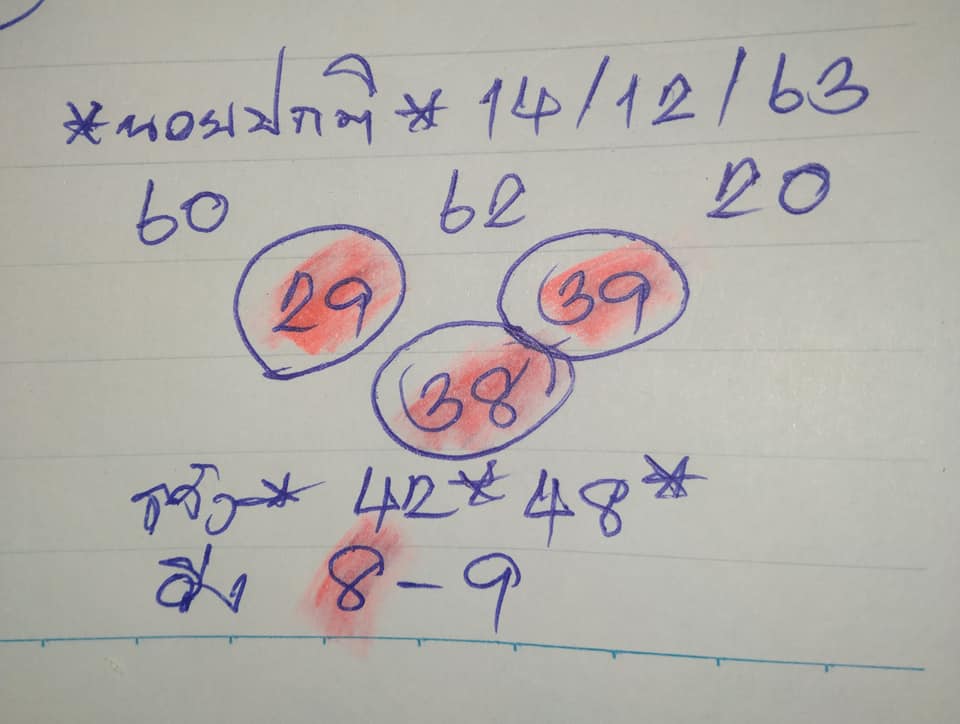 *หอยปกติ* 14/12/63
60 62 20
29 39
38
* 42* 48*
8-9